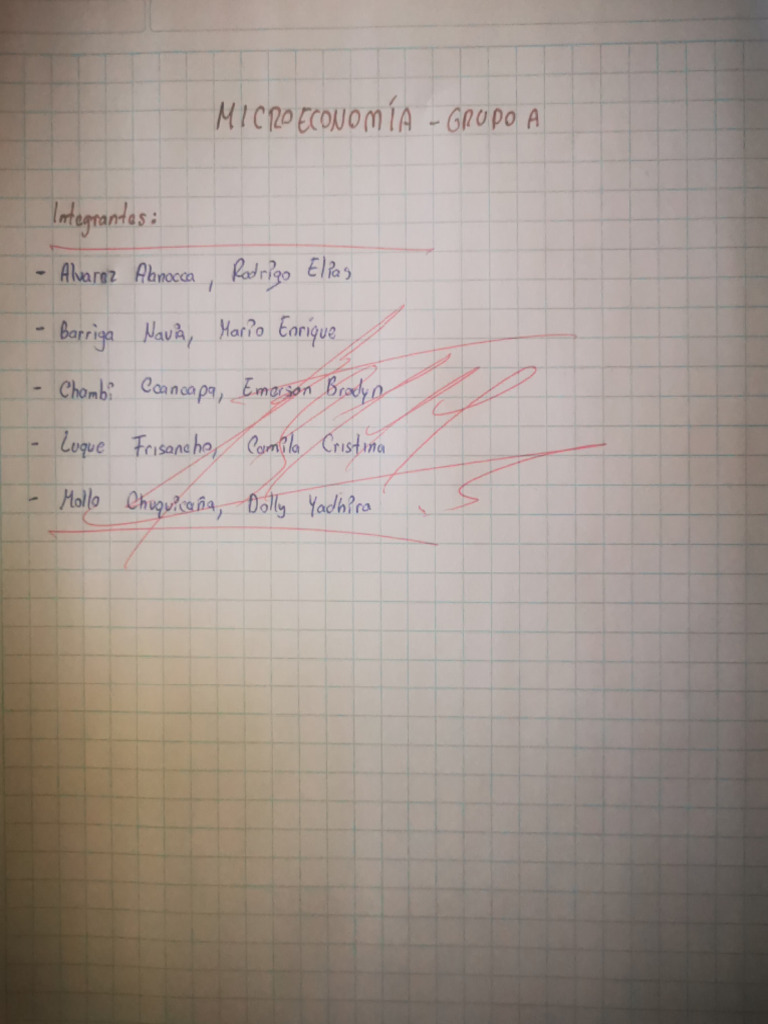 MICROECONOMÍA - GRUPO A
Integrantes:
- Alvarez Abnocca, Rodrigo Elias
- Barriga Navia, Mario Enrique
- Chambi Ccancapa, Emerson Bradyn
- Luque Frisancho, Camila Cristina
- Mollo Chuquicaña, Dolly Yadhira